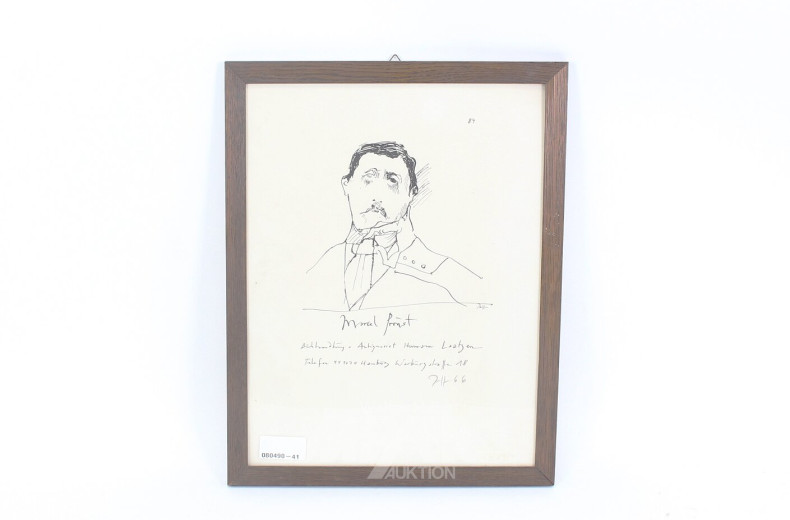 84
Marcel Proust
Buchhandlung + Antiquariat Hermann Laatzen
Telefon Hamburg Warburgstraße 18
66
080498-41
AUKTION